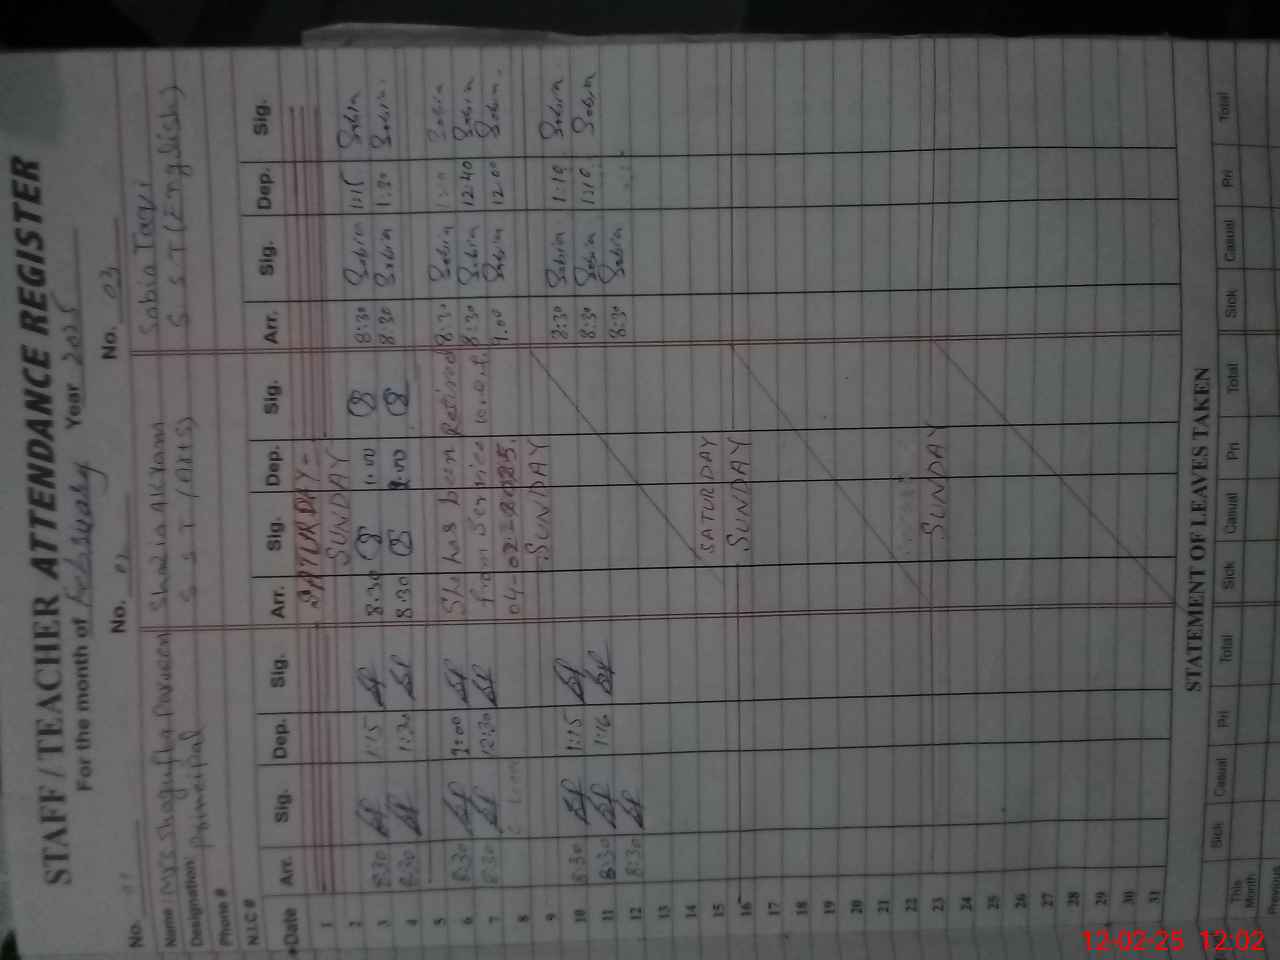 STAFF / TEACHER ATTENDANCE REGISTER
For the month of February Year 2025
No. 01 No. 02 No. 03
Name: Mrs Shagufta Parveen Shazia Akram Sabia Taqvi
Designation Principal S S T S. S T (English)
Phone #
N.I.C #
Date Arr. Sig. Dep. Sig. Arr. Sig. Dep. Sig. Arr. Sig. Dep. Sig.
1 SATURDAY
2 SUNDAY
3 8:30 1:15 8:30 1:00 8:30 Sabia 1:15 Sabia
4 8:30 1:30 8:30 8:30 Sabia 1:30 Sabia
5 8:30 Sabia Sabia
6 8:30 2:00 She has been Retired 8:30 Sabia 12:40 Sabia
7 8:30 12:30 from Service w.e.f. 9.00 Sabia 12:00 Sabia
8 04-02-2025.
9 SUNDAY
10 8:30 1:15 8:30 Sabia 1:10 Sabia
11 8:30 1:16 8:30 Sabia 1:10 Sabia
12 8:30 8:30 Sabia
13
14
15 SATURDAY
16 SUNDAY
17
18
19
20
21
22
23 SUNDAY
24
25
26
27
28
29
30
31
STATEMENT OF LEAVES TAKEN
Sick Casual Pri Total Sick Casual Pri Total Sick Casual Pri Total
This Month
Previous
12-02-25 12:02